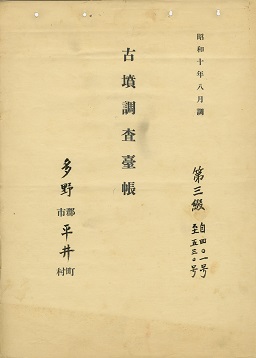 昭和十年八月調
第三綴 自四〇一号
至五三〇号
古墳調査臺帳
多野郡市平井町村